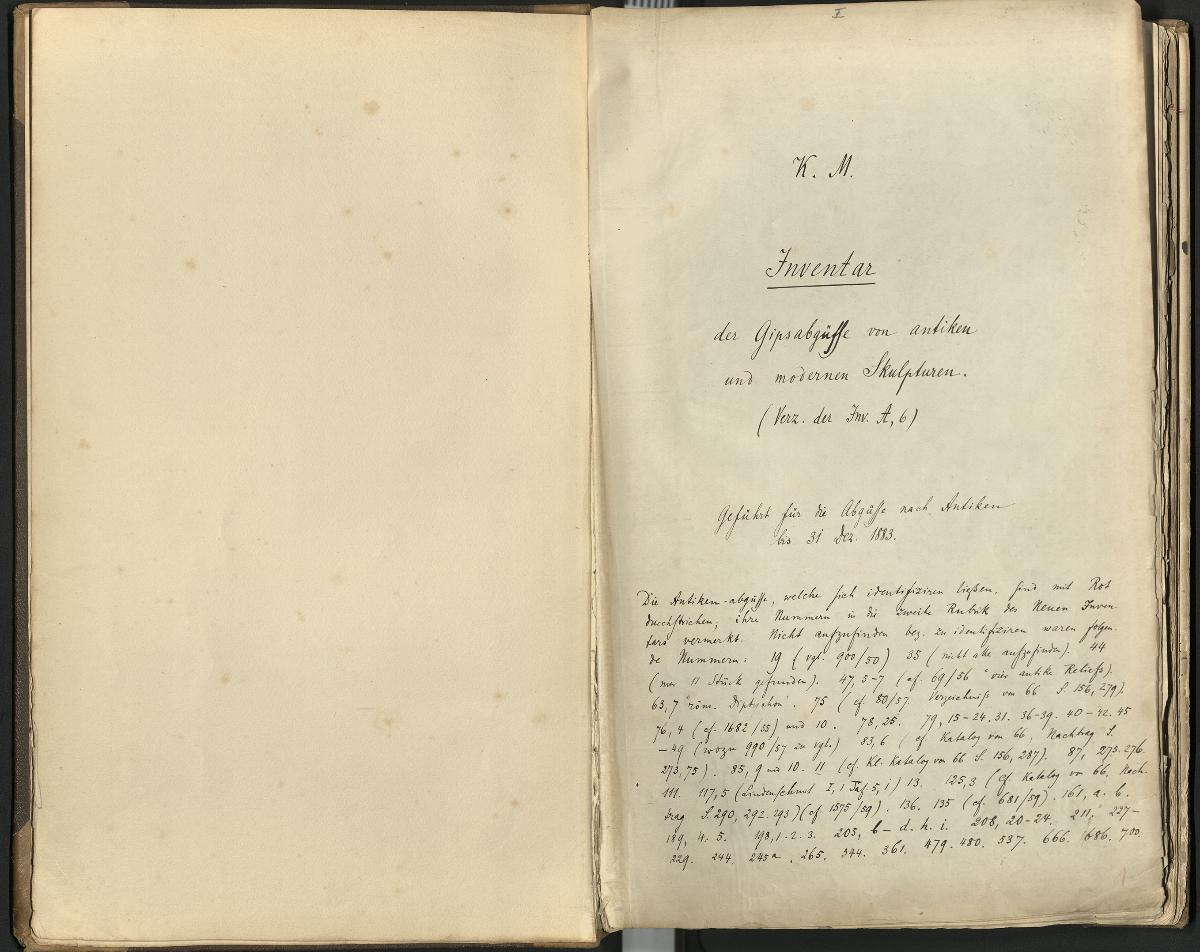 I
K. M.
Inventar
der Gipsabgüsse von antiken
und modernen Skulpturen.
(Verz. der Inv. A, 6)
Geführt für die Abgüsse nach Antiken
bis 31 Dez. 1883.
Die Antiken-abgüsse, welche sich identifiziren ließen, sind mit Rot
durchstrichen, ihre Nummern in die zweite Rubrik des Neuen Inven-
tars vermerkt. Nicht aufzufinden bez. zu identifiziren waren folgen-
de Nummern: 19 (vgl. 900/50) 35 (nicht alle aufzufinden). 44
(nur 11 Stück gefunden). 47, 5-7 (cf. 69/56 "vier antike Reliefs).
63, 7 "röm. Diptychon". 75 (cf. 80/57. Verzeichniß von 66 S. 156, 279).
76, 4 (cf. 1682/55) und 10. 78, 25. 79, 15-24. 31. 36-39. 40-42. 45
-49 (wozu 990/57 zu vgl.) 83, 6 (cf. Katalog von 66, Nachtrag S.
273, 75). 85, 9 und 10. 11 (cf. Kl. Katalog von 66 S. 156, 287). 87, 275. 276.
111. 117, 5 (Lindenschmit I, 1 Taf. 5, 1) 13. 125, 3 (cf. Katalog von 66, Nach-
trag S. 290, 292. 293) (cf 1575/59). 136. 135 (cf. 681/59). 161, a. b.
189, 4. 5. 198, 1. 2. 3. 205, b-d. h. i. 208, 20-24. 211, 227-
229. 244. 245a. 265. 344. 361. 479. 480. 537. 666. 686. 700.